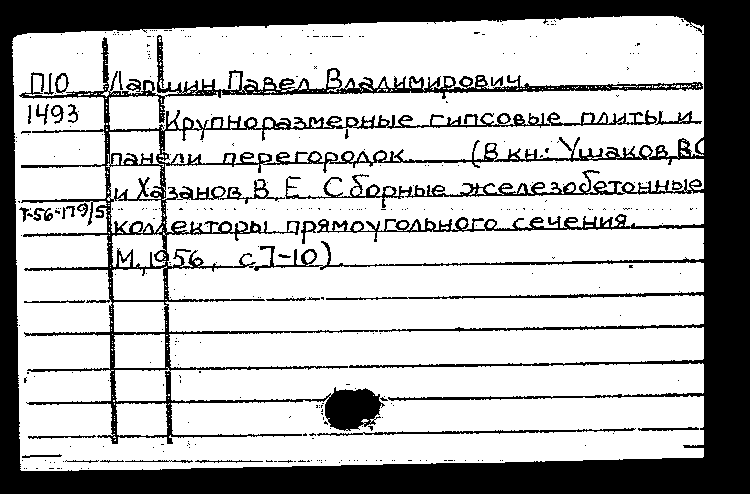 П10 Лапшин, Павел Владимирович.
1493 Крупноразмерные гипсовые плиты и
панели перегородок. (В кн.: Ушаков, В.С
и Хазанов, В. Е. Сборные железобетонные
Т-56-179/5 коллекторы прямоугольного сечения.
М., 1956, с. 7-10).